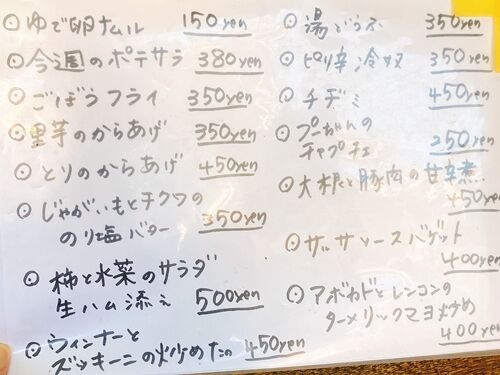 ⊙ゆで卵ナムル 150yen
⊙今週のポテサラ 380yen
⊙ごぼうフライ 350yen
⊙里芋のからあげ 350yen
⊙とりのからあげ 450yen
⊙じゃがいもとチクワの
のり塩バター 350yen
⊙柿と水菜のサラダ
生ハム添え 500yen
⊙ウィンナーと
ズッキーニの炒めたの 450yen
⊙湯どうふ 350yen
⊙ピリ辛冷奴 350yen
⊙チヂミ 450yen
⊙プーさんの
チャプチェ 250yen
⊙大根と豚肉の甘辛煮
450yen
⊙ザッサソースバゲット
400yen
⊙アボカドとレンコンの
ターメリックマヨ炒め
400yen